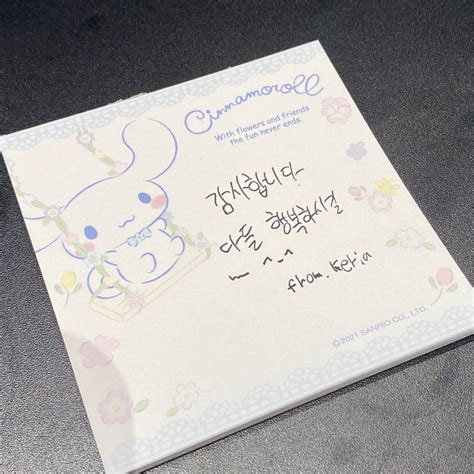 Cinnamoroll
With flowers and friends
the fun never ends.
감사합니다
다들 행복하시길
^-^
from. keria
© 2021 SANRIO CO., LTD.